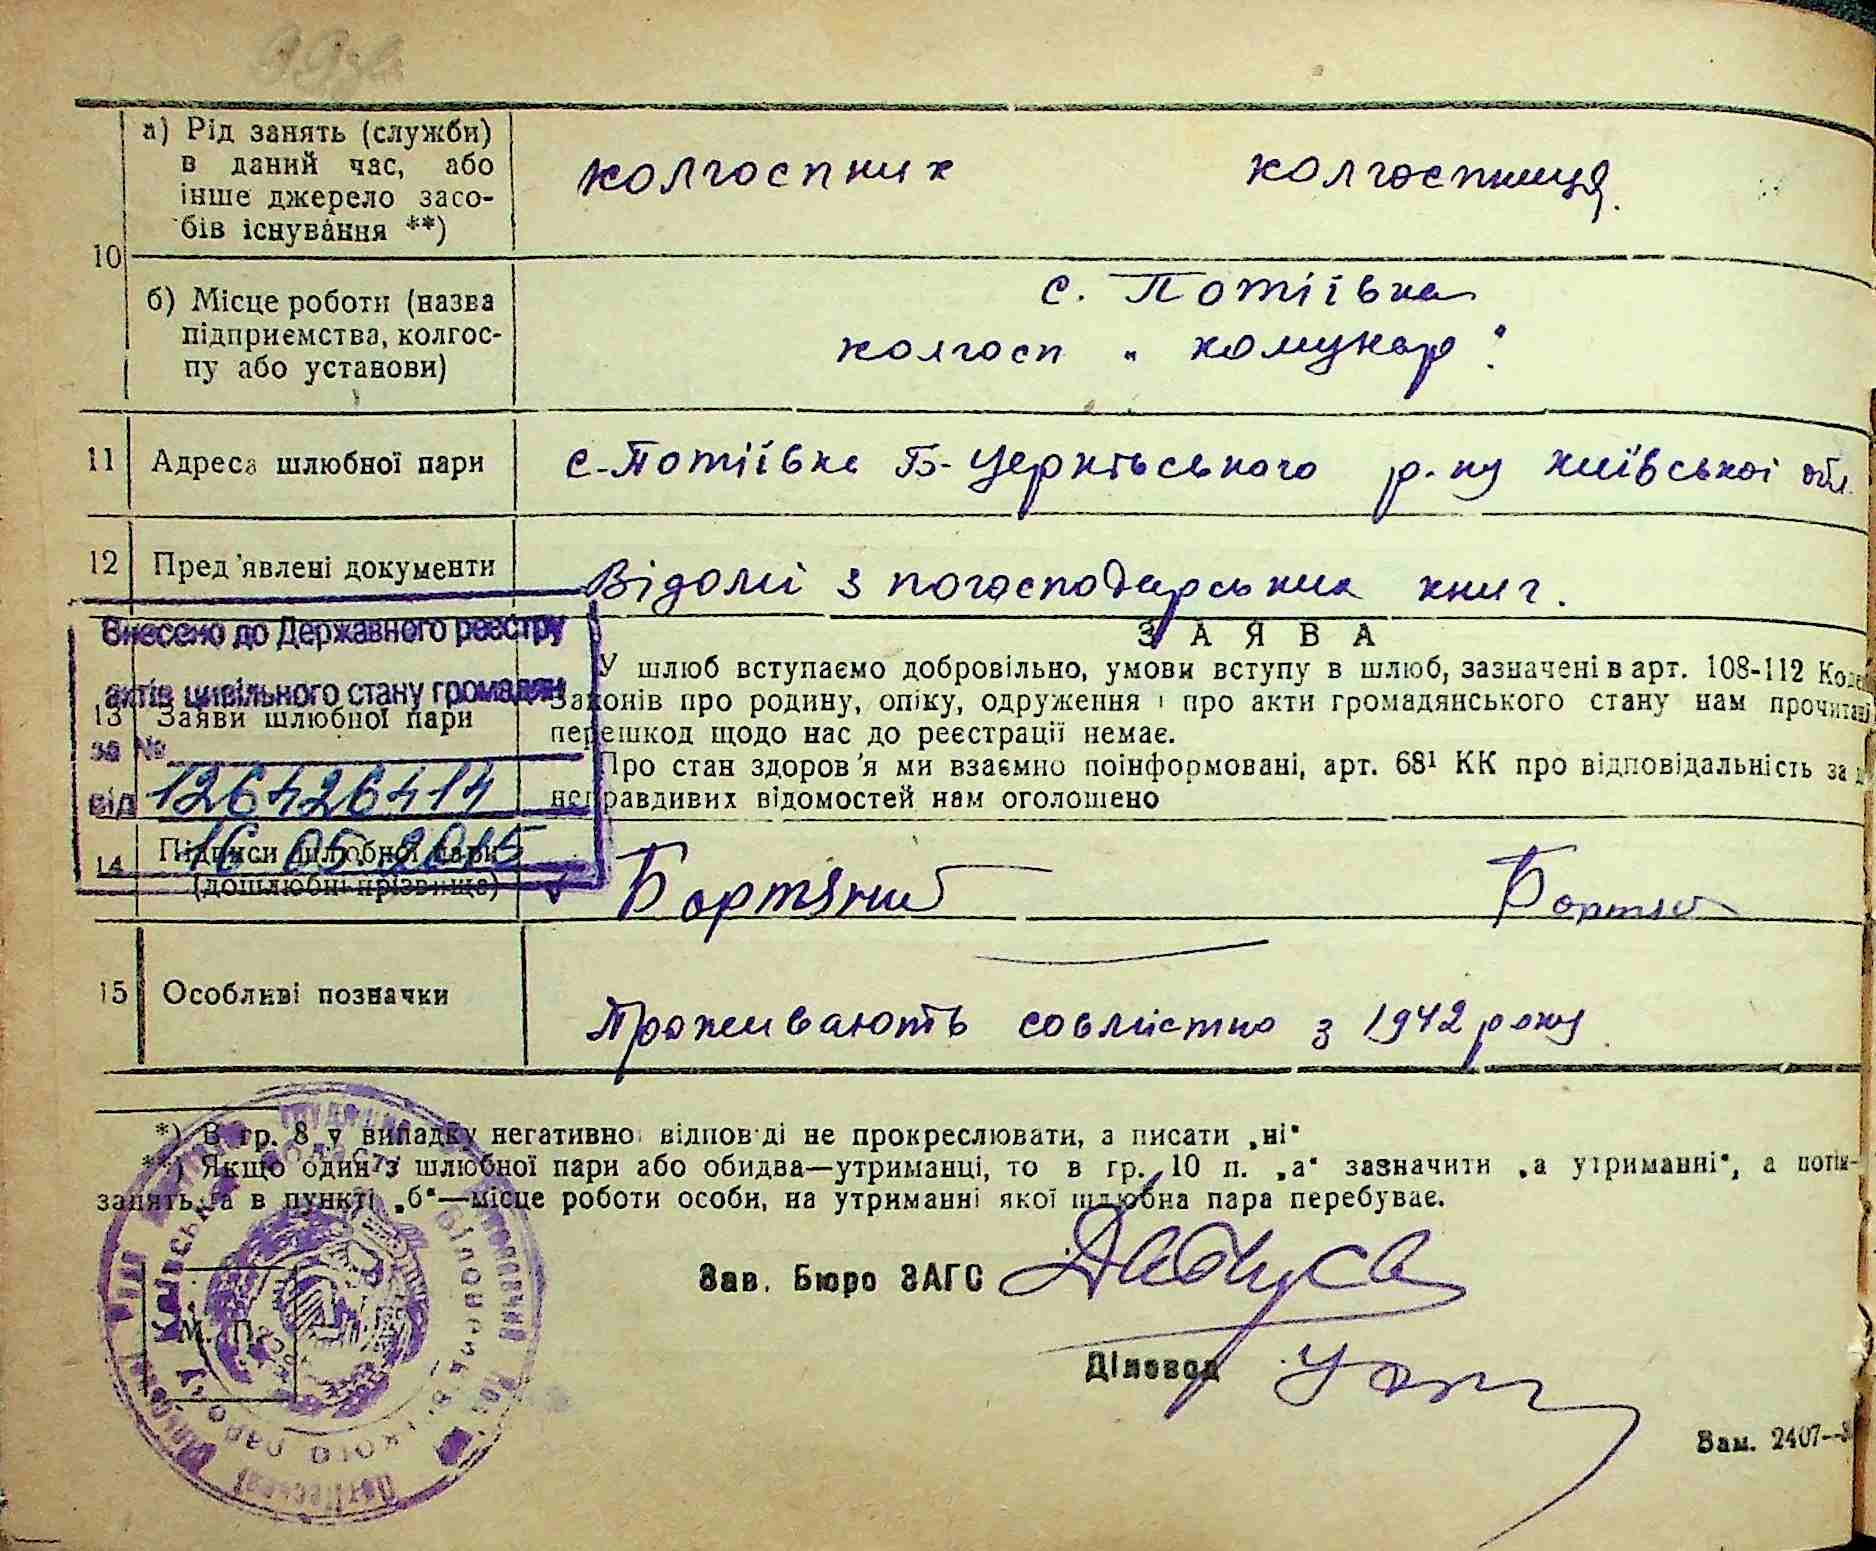 а) Рід занять (служби)
в даний час, або
інше джерело засо-
бів існування **)
колгоспник колгоспниця.
10
б) Місце роботи (назва
підприємства, колгос-
пу або установи)
с. Потіївка
колгосп „ комунар".
11 Адреса шлюбної пари
с-Потіївка Б-Церківського р-ну київської обл.
12 Пред'явлені документи
Відомі з погосподарських книг.
Внесено до Державного реєстру
актів цивільного стану громадян
за №
126426414
від
16 05. 2015
13 Заяви шлюбної пари
ЗАЯВА
У шлюб вступаємо добровільно, умови вступу в шлюб, зазначені в арт. 108-112
Законів про родину, опіку, одруження і про акти громадянського стану нам
перешкод щодо нас до реєстрації немає.
Про стан здоров'я ми взаємно поінформовані, арт. 68¹ КК про відповідальність за
неправдивих відомостей нам оголошено
14 Підписи шлюбної пари
(дошлюбні прізвища)
Бортяний
15 Особливі позначки
Проживають совмістно з 1942 року
*) В гр. 8 у випадку негативної відповіді не прокреслювати, а писати „ні"
**) Якщо один з шлюбної пари або обидва—утриманці, то в гр. 10 п. „а" зазначити „а утриманні", а потім-
занять, а в пункті „б"—місце роботи особи, на утриманні якої шлюбна пара перебуває.
М. П.
Зав. Бюро ЗАГС
Діловод
Зам. 2407—